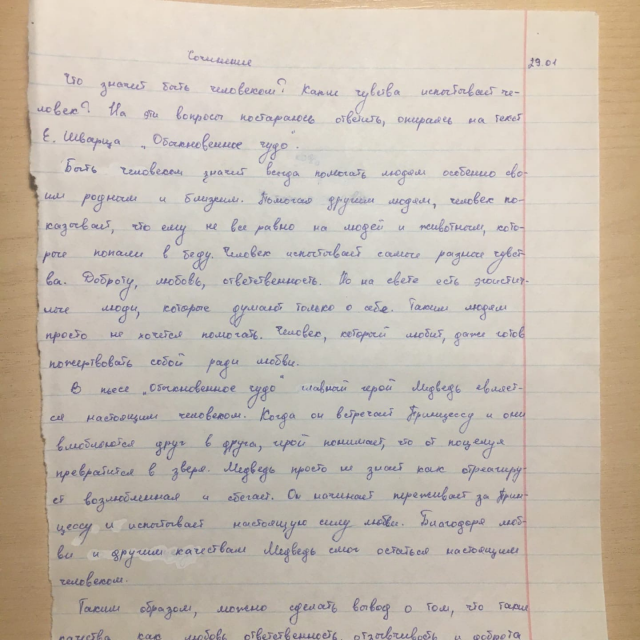 Сочинение
29.01
Что значит быть человеком? Какие чувства испытывает че-
ловек? На эти вопросы постараюсь ответить, опираясь на текст
Е. Шварца „Обыкновенное чудо".
Быть человеком значит всегда помогать людям особенно сво-
им родным и близким. Помогая другим людям, человек по-
казывает, что ему не все равно на людей и животных, кото-
рые попали в беду. Человек испытывает самые разные чувст-
ва. Доброту, любовь, ответственность. Но на свете есть эгоистич-
ные люди, которые думают только о себе. Таким людям
просто не хочется помогать. Человек, который любит, даже готов
пожертвовать собой ради любви.
В пьесе „Обыкновенное чудо" главный герой Медведь являет-
ся настоящим человеком. Когда он встречает Принцессу и они
влюбляются друг в друга, герой понимает, что от поцелуя
превратится в зверя. Медведь просто не знает как отреагиру-
ет возлюбленная и сбегает. Он начинает переживает за Прин-
цессу и испытывает настоящую силу любви. Благодаря люб-
ви и другим качествам Медведь смог остаться настоящим
человеком.
Таким образом, можно сделать вывод о том, что такие
качества как любовь ответственность, отзывчивость и доброта